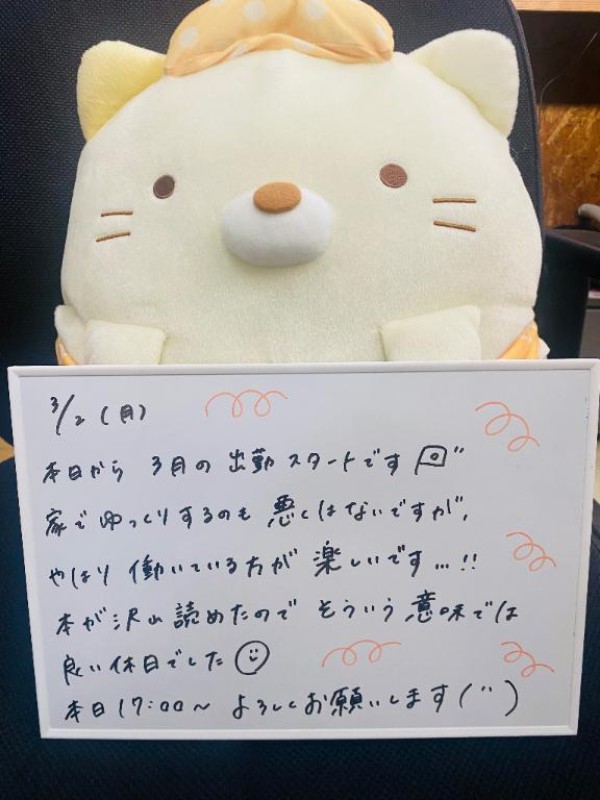 3/2 (月)
本日から 3月の 出勤 スタートです
家で ゆっくりするのも 悪くはないですが、
やはり 働いている方が 楽しいです...!!
本が沢山 読めたので そういう 意味では
良い休日でした
本日 17:00～ よろしくお願いします